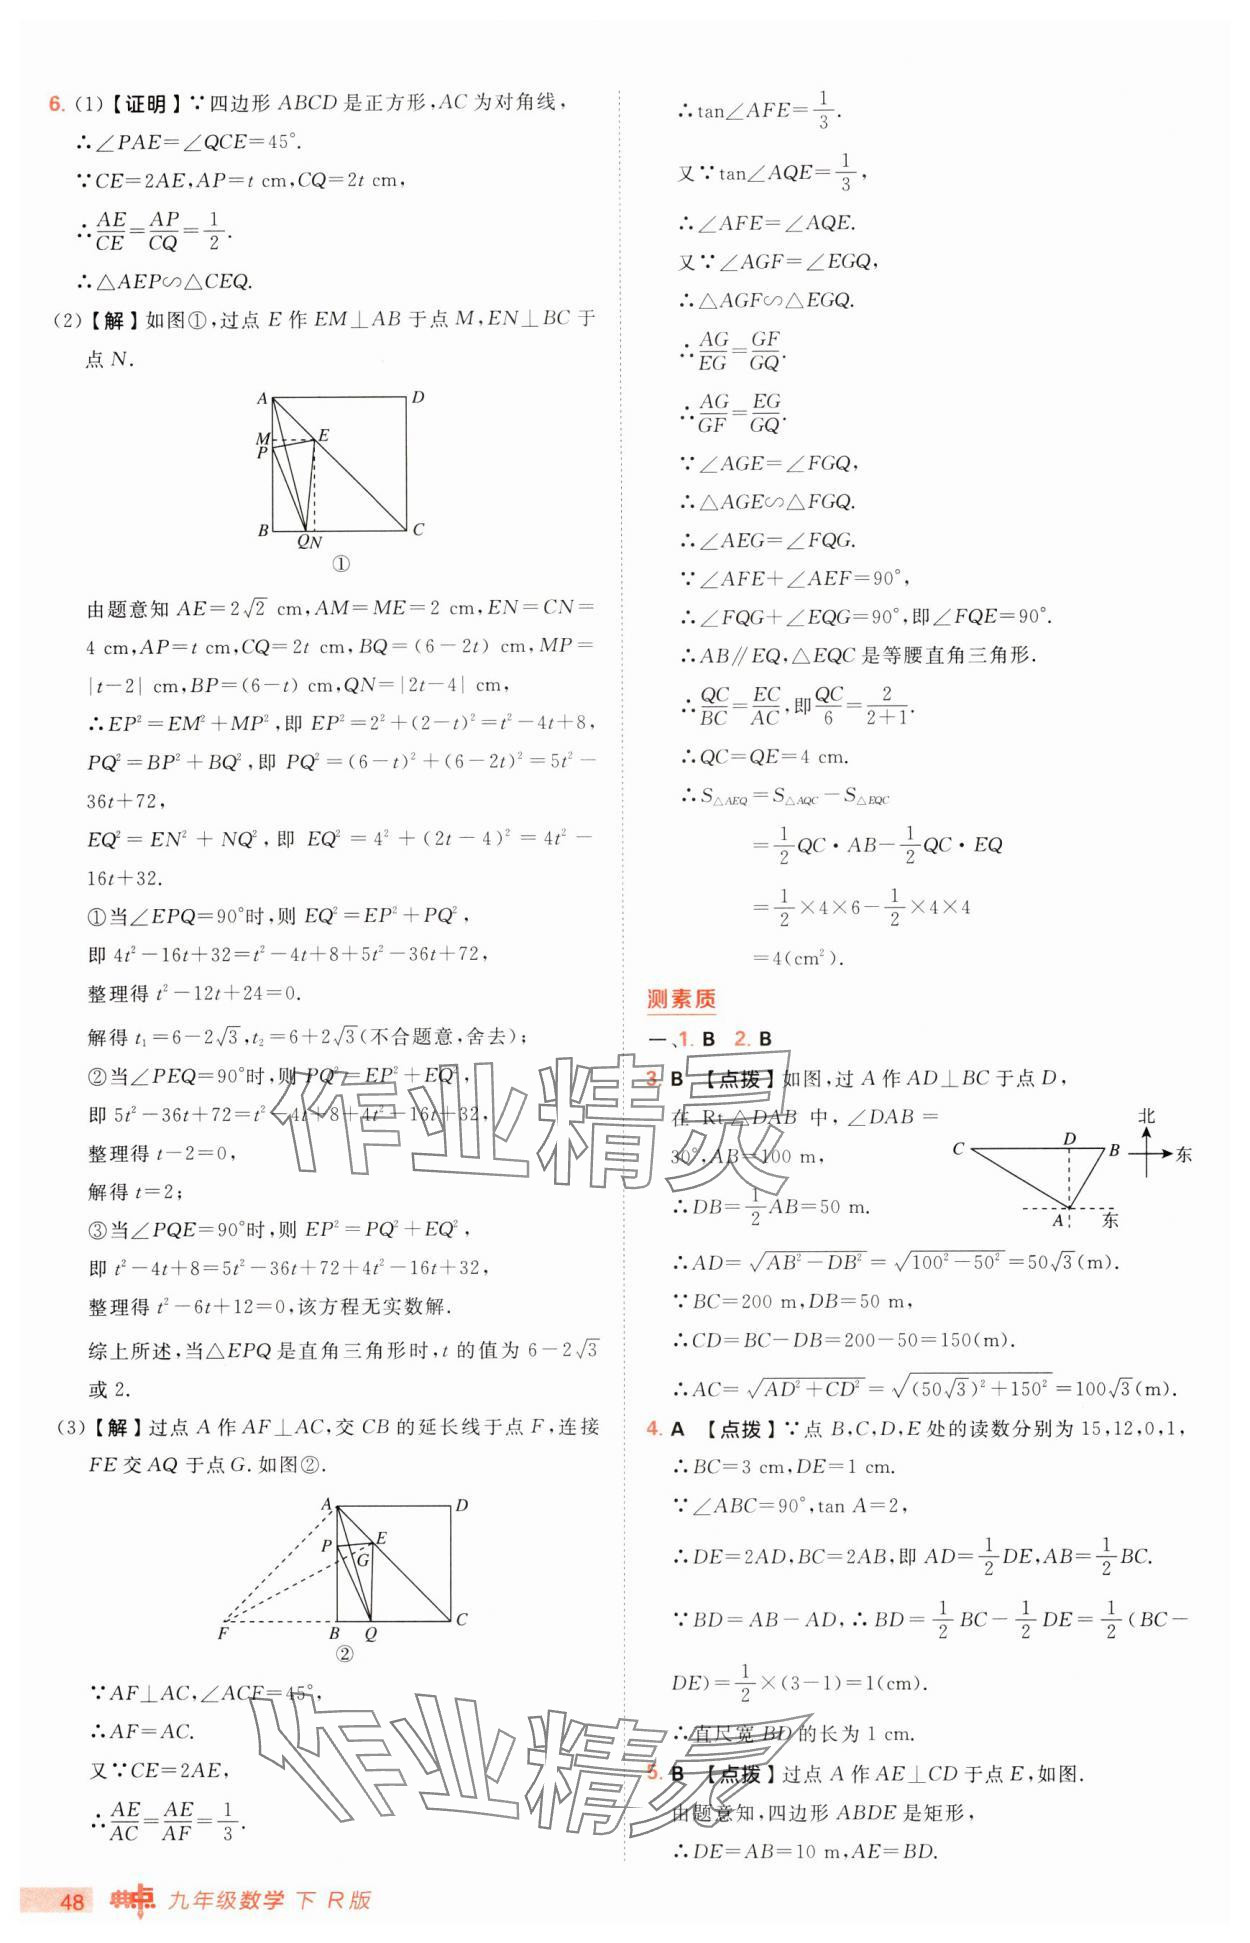 6. (1)【证明】∵四边形 ABCD 是正方形,AC 为对角线,
∴∠PAE=∠QCE=45°.
∵CE=2AE,AP=t cm,CQ=2t cm,
∴AE/CE=AP/CQ=1/2.
∴△AEP∽△CEQ.
(2)【解】如图①,过点 E 作 EM⊥AB 于点 M,EN⊥BC 于
点 N.
A D
M E
P
B Q N C
①
由题意知 AE=2√2 cm,AM=ME=2 cm,EN=CN=
4 cm,AP=t cm,CQ=2t cm,BQ=(6-2t) cm,MP=
|t-2| cm,BP=(6-t) cm,QN=|2t-4| cm,
∴EP²=EM²+MP²,即 EP²=2²+(2-t)²=t²-4t+8,
PQ²=BP²+BQ²,即 PQ²=(6-t)²+(6-2t)²=5t²-
36t+72,
EQ²=EN²+NQ²,即 EQ²=4²+(2t-4)²=4t²-
16t+32.
①当∠EPQ=90°时,则 EQ²=EP²+PQ²,
即 4t²-16t+32=t²-4t+8+5t²-36t+72,
整理得 t²-12t+24=0.
解得 t₁=6-2√3,t₂=6+2√3(不合题意,舍去);
②当∠PEQ=90°时,则 PQ²=EP²+EQ²,
即 5t²-36t+72=t²-4t+8+4t²-16t+32,
整理得 t-2=0,
解得 t=2;
③当∠PQE=90°时,则 EP²=PQ²+EQ²,
即 t²-4t+8=5t²-36t+72+4t²-16t+32,
整理得 t²-6t+12=0,该方程无实数解.
综上所述,当△EPQ 是直角三角形时,t 的值为 6-2√3
或 2.
(3)【解】过点 A 作 AF⊥AC,交 CB 的延长线于点 F,连接
FE 交 AQ 于点 G.如图②.
A D
P E
G
F B Q C
②
∵AF⊥AC,∠ACF=45°,
∴AF=AC.
又∵CE=2AE,
∴AE/AC=AE/AF=1/3.
∴tan∠AFE=1/3.
又∵tan∠AQE=1/3,
∴∠AFE=∠AQE.
又∵∠AGF=∠EGQ,
∴△AGF∽△EGQ.
∴AG/EG=GF/GQ.
∴AG/GF=EG/GQ.
∵∠AGE=∠FGQ,
∴△AGE∽△FGQ.
∴∠AEG=∠FQG.
∵∠AFE+∠AEF=90°,
∴∠FQG+∠EQG=90°,即∠FQE=90°.
∴AB∥EQ,△EQC 是等腰直角三角形.
∴QC/BC=EC/AC,即QC/6=2/(2+1).
∴QC=QE=4 cm.
∴S△AEQ=S△AQC-S△EQC
=1/2QC·AB-1/2QC·EQ
=1/2×4×6-1/2×4×4
=4(cm²).
测素质
一、1. B 2. B
3. B 【点拨】如图,过 A 作 AD⊥BC 于点 D,
在 Rt△DAB 中,∠DAB=
30°,AB=100 m,
∴DB=1/2AB=50 m.
C D B 北 东
A 东
∴AD=√(AB²-DB²)=√(100²-50²)=50√3(m).
∵BC=200 m,DB=50 m,
∴CD=BC-DB=200-50=150(m).
∴AC=√(AD²+CD²)=√((50√3)²+150²)=100√3(m).
4. A 【点拨】∵点 B,C,D,E 处的读数分别为 15,12,0,1,
∴BC=3 cm,DE=1 cm.
∵∠ABC=90°,tan A=2,
∴DE=2AD,BC=2AB,即 AD=1/2DE,AB=1/2BC.
∵BD=AB-AD,∴BD=1/2BC-1/2DE=1/2(BC-
DE)=1/2×(3-1)=1(cm).
∴直尺宽 BD 的长为 1 cm.
5. B 【点拨】过点 A 作 AE⊥CD 于点 E,如图.
由题意知,四边形 ABDE 是矩形,
∴DE=AB=10 m,AE=BD.
作业精灵
作业精灵
48 典中点 九年级数学 下 R版